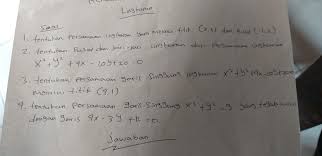 Lingkaran
Soal
1. tentukan Persamaan lingkaran yang melalui titik (2,3) dan Pusat (-1,2)
2. tentukan Pusat dan jari-jari lingkaran dari Persamaan lingkaran
x² + y² + 4x - 10y + 20 = 0
3. tentukan Persamaan garis Singgung lingkaran x² + y²
melalui titik (9,1)
4. tentukan Persamaan garis Singgung x² + y² = 9 yang
dengan garis 4x - 3y + = 0.
Jawaban